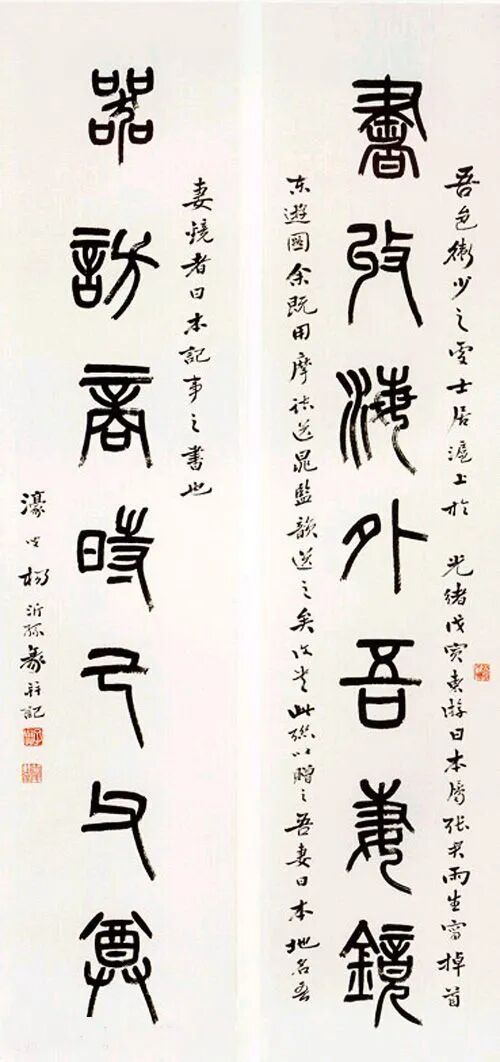 書攷海外吾妻鏡
器訪商時己父尊
吾邑衛少之雯士居滬上於光緒戊寅東游日本屬張君雨生寫掉首
東遊圖余既用摩詰送晁監韻送之矣又書此聯以贈之吾妻日本地名吾
妻鏡者日本記事之書也
濠叟楊沂孫篆并記